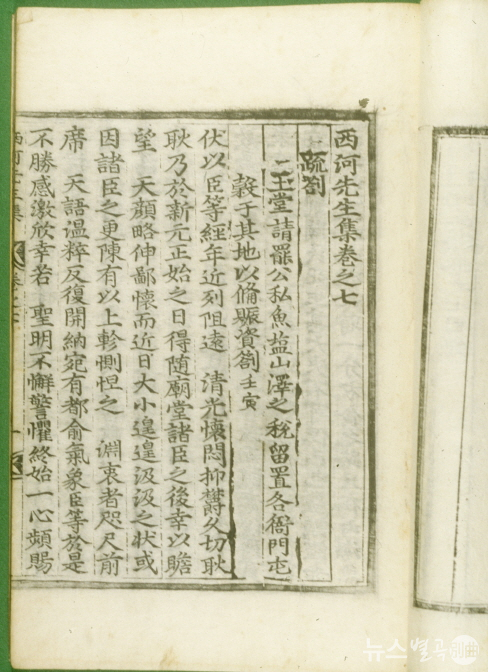 西河先生集卷之七
疏劄
玉堂請罷公私魚塩山澤之稅留置各衙門屯
穀于其地以備賑資劄 壬寅
伏以臣等經年近列阻遠 清光懷悶抑欝久切耿
耿乃於新元正始之日得隨廟堂諸臣之後幸以瞻
望 天顔略伸鄙懷而近日大小遑遑汲汲之狀或
因諸臣之更陳有以上軫惻怛之 淵衷者咫尺前
席 天語温粹反復開納宛有都俞氣象臣等於是
不勝感激欣幸若 聖明不懈警懼終始一心頻賜
뉴스별곡